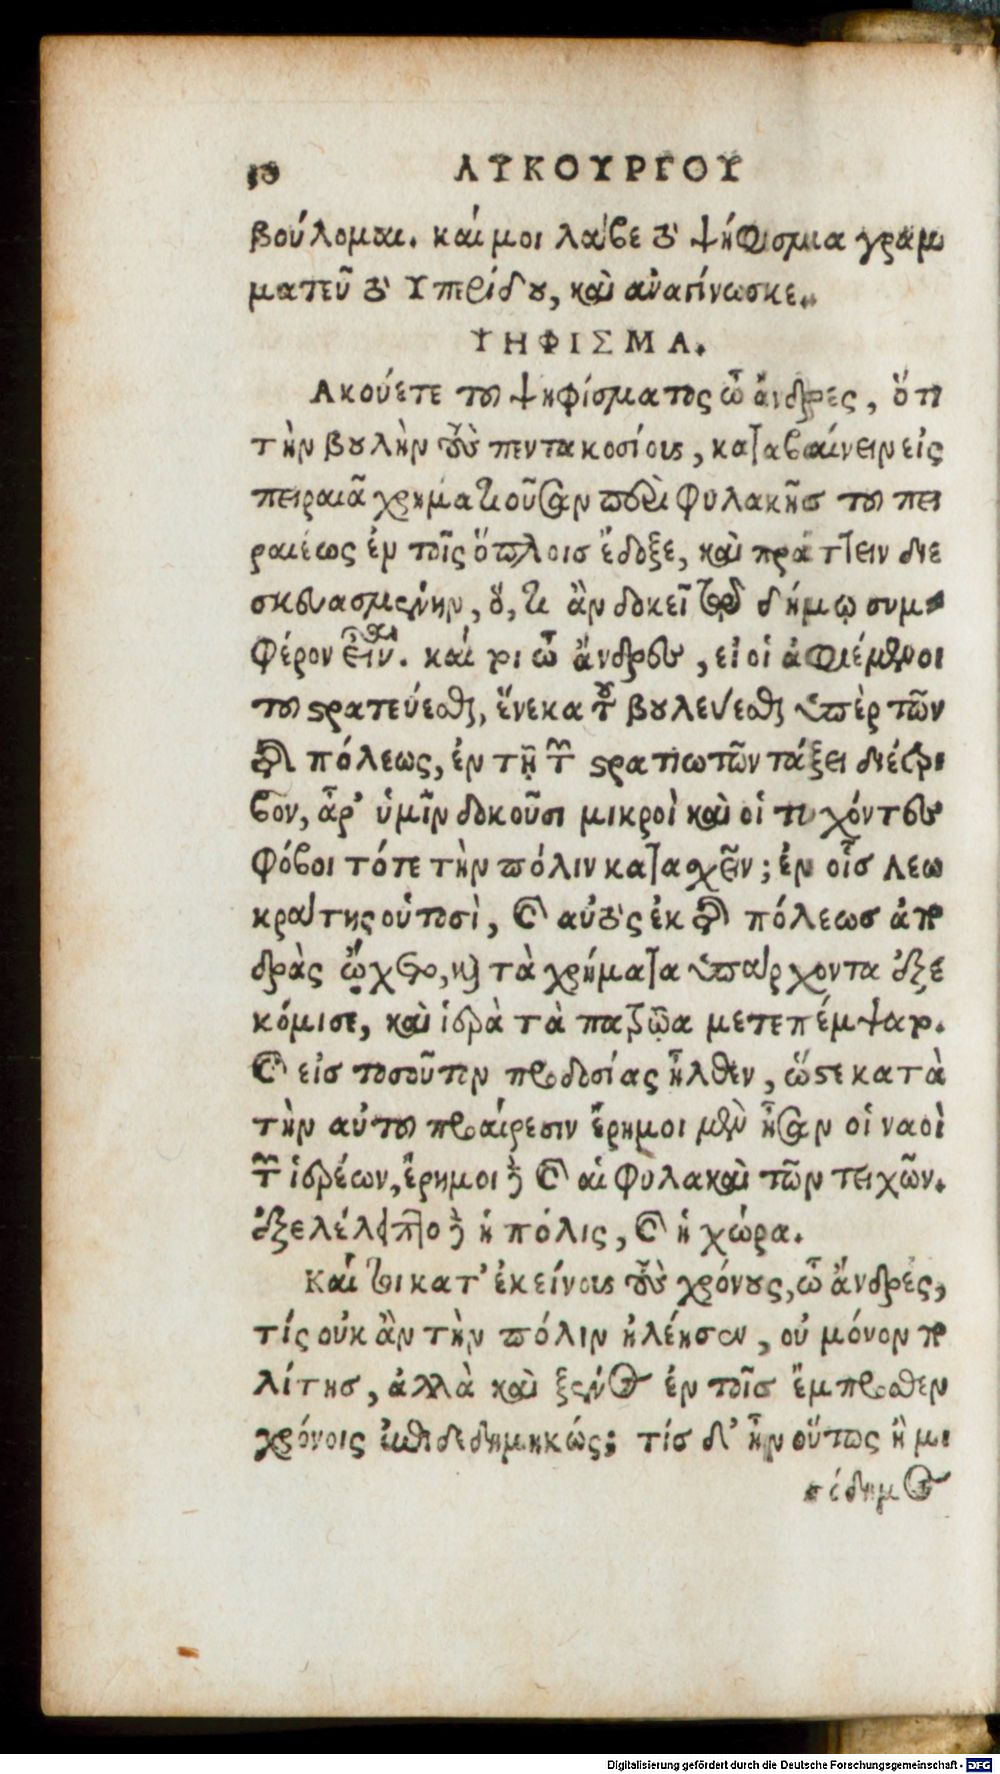 ΛΥΚΟΥΡΓΟΥ
βούλομαι. καί μοι λαβὲ τὸ ψήφισμα γραμ
ματεῦ τὸ Υπερίδου, καὶ ἀναγίνωσκε.
ΨΗΦΙΣΜΑ.
Ακούετε τοῦ ψηφίσματος ὦ ἄνδρες, ὅτι
τὴν βουλὴν τοὺς πεντακοσίους, καταβαίνειν εἰς
πειραιᾶ χρηματιοῦσαν περὶ φυλακῆς τοῦ πει
ραιέως ἐν τοῖς ὅπλοις ἔδοξε, καὶ πράττειν διε
σκευασμένην, ὅ, τι ἂν δοκεῖ τῷ δήμῳ συμ-
φέρον εἶναι. καί τοι ὦ ἄνδρες, εἰ οἱ ἀφιέμενοι
τοῦ στρατεύεσθαι, ἕνεκα τοῦ βουλεύεσθαι ὑπὲρ τῶν
τῆς πόλεως, ἐν τῇ τῶν στρατιωτῶν τάξει διέτρι
βον, ἆρ’ ὑμῖν δοκοῦσι μικροὶ καὶ οἱ τυχόντες
φόβοι τότε τὴν πόλιν κατασχεῖν; ἐν οἷς Λεω
κράτης οὑτοσὶ, καὶ αὐτὸς ἐκ τῆς πόλεως ἀπο
δρὰς ᾤχετο, καὶ τὰ χρήματα ὑπάρχοντα ἐξε
κόμισε, καὶ ἱερὰ τὰ πατρῷα μετεπέμψατο.
καὶ εἰς τοσοῦτον προδοσίας ἦλθεν, ὥστε κατὰ
τὴν αὐτοῦ προαίρεσιν ἔρημοι μὲν ἦσαν οἱ ναοὶ
τῶν ἱερέων, ἔρημοι δὲ καὶ αἱ φυλακαὶ τῶν τειχῶν.
ἐξελέλειπτο δὲ ἡ πόλις, καὶ ἡ χώρα.
Καί τοι κατ’ ἐκείνους τοὺς χρόνους, ὦ ἄνδρες,
τίς οὐκ ἂν τὴν πόλιν ἠλέησεν, οὐ μόνον πο
λίτης, ἀλλὰ καὶ ξένος ἐν τοῖς ἔμπροσθεν
χρόνοις ἐπιδεδημηκώς; τίς δ’ ἦν οὕτως ἢ μι
σόδημος
Digitalisierung gefördert durch die Deutsche Forschungsgemeinschaft - DFG